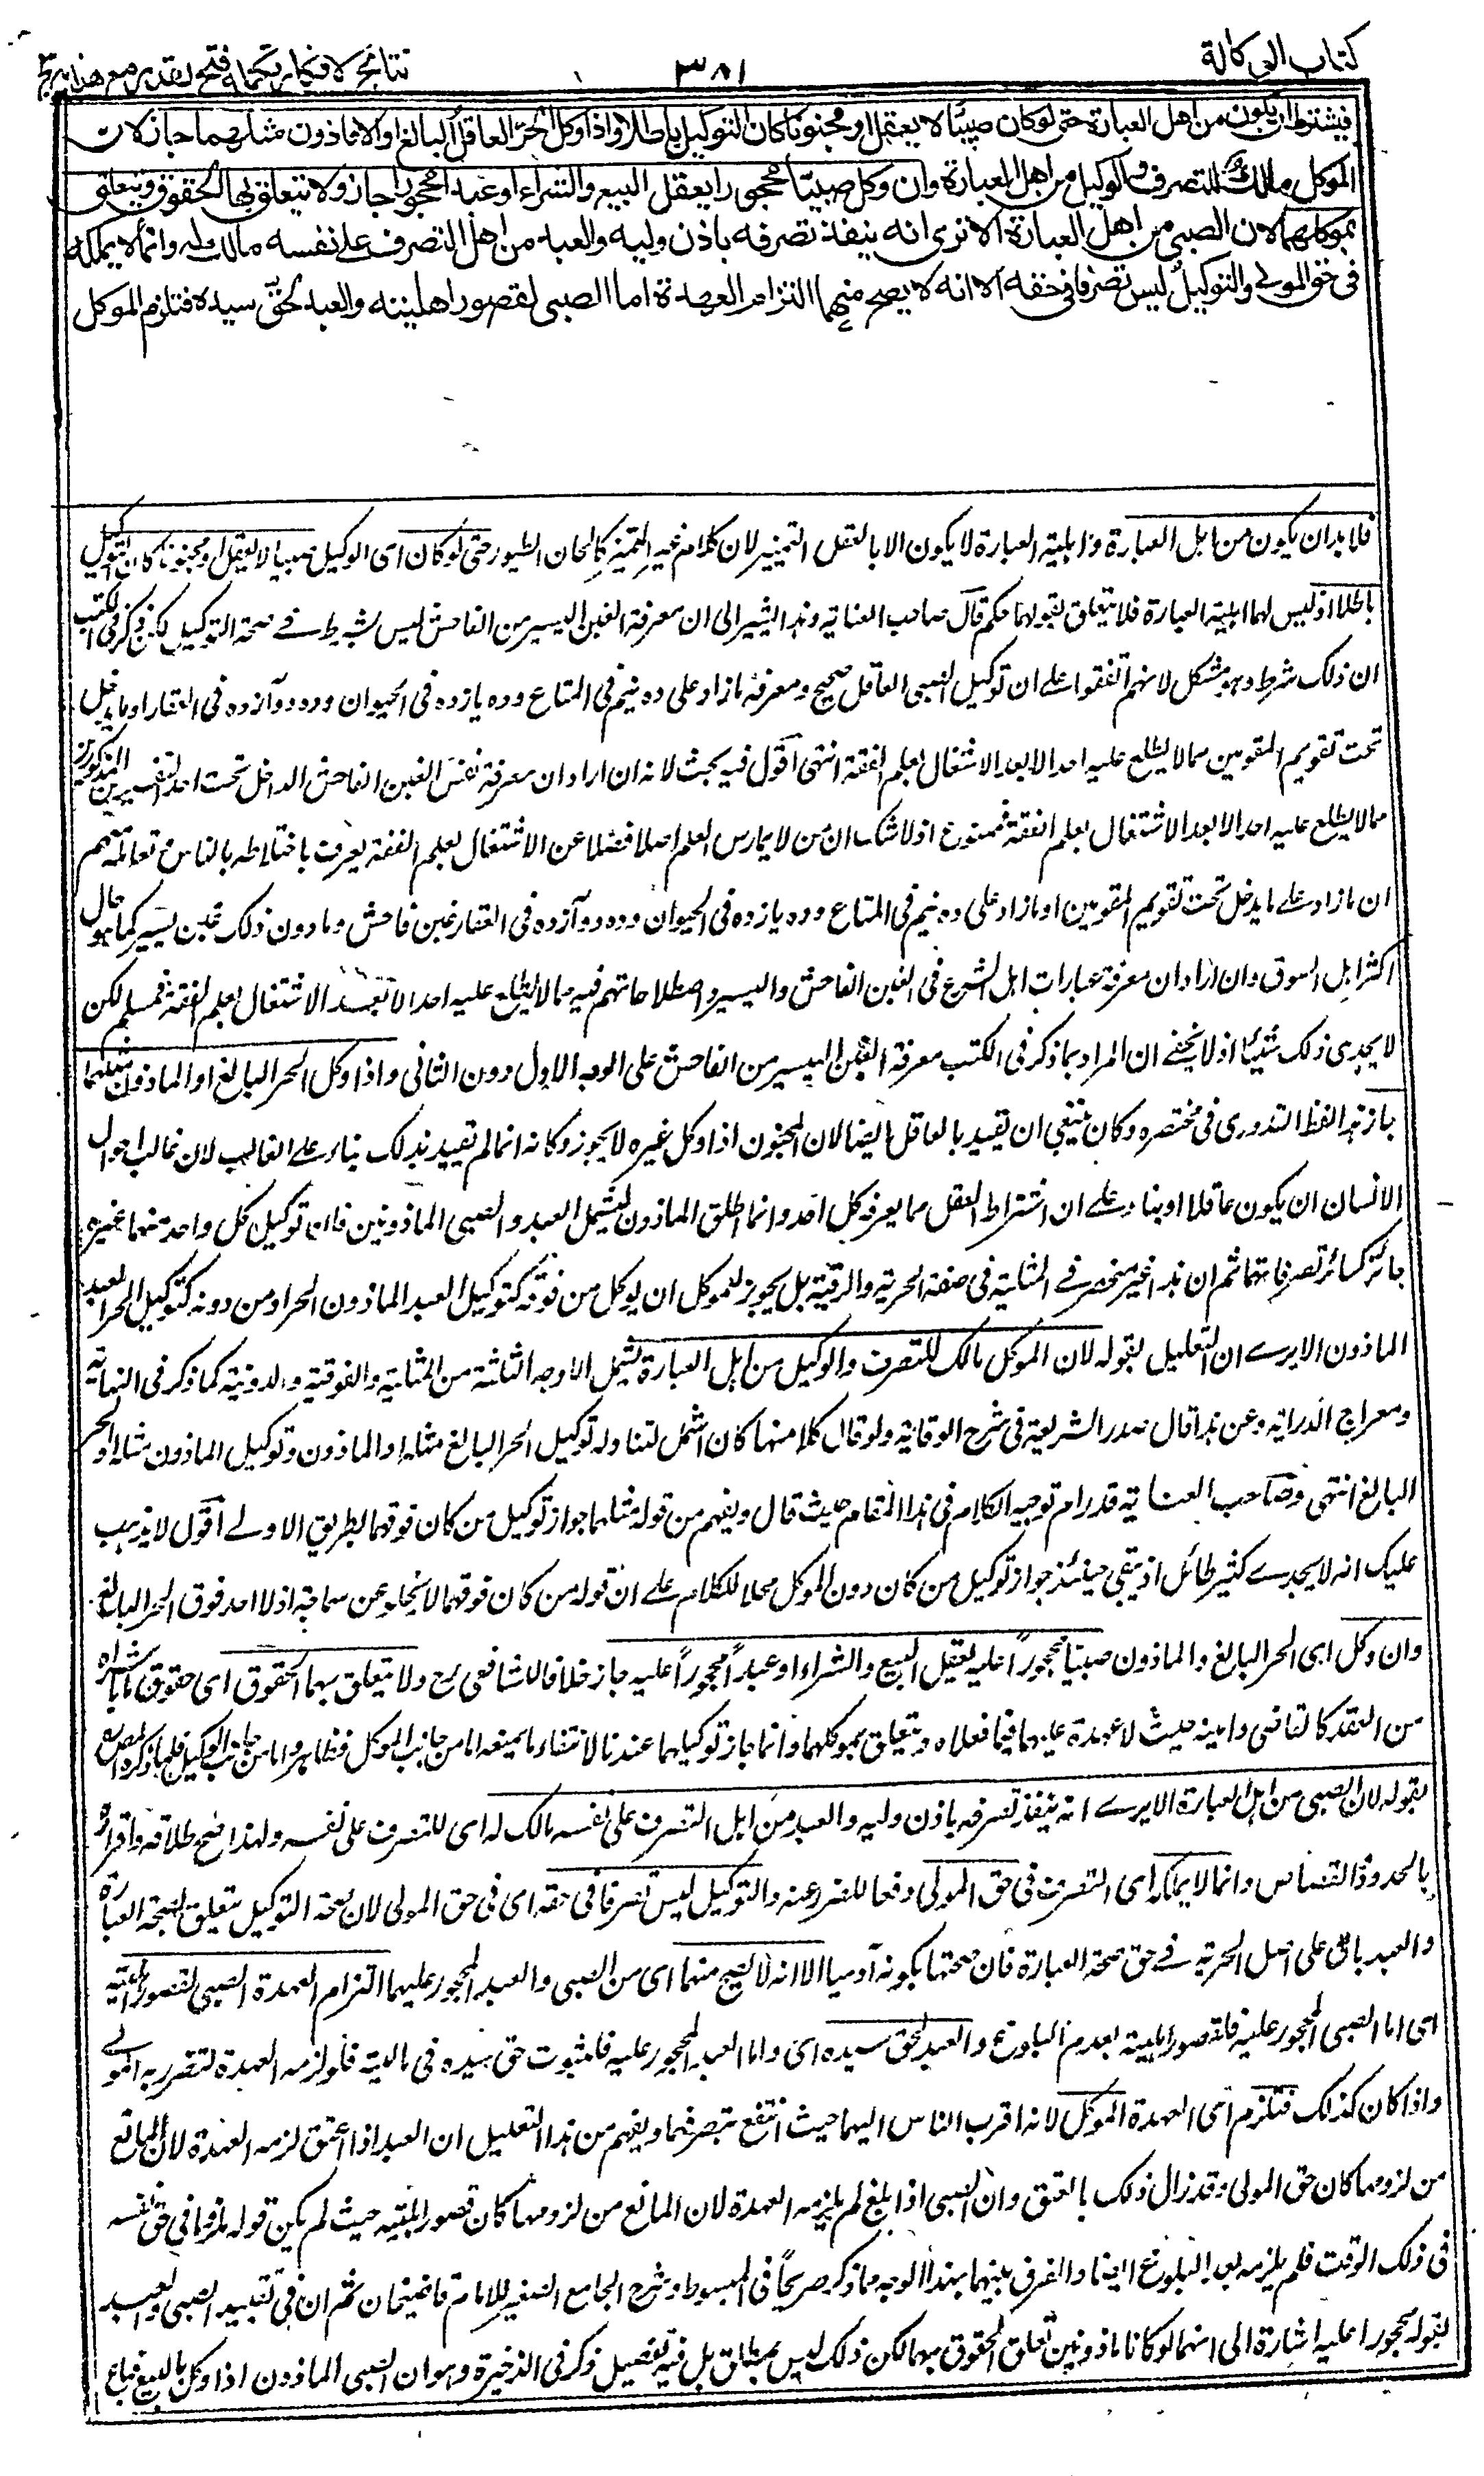 كتاب الوكالة
٣٨١
نتائج الافكار تكملة فتح القدير مع هداية ج ٣
فيشترط ان يكون من اهل العبارة حتى لو كان صبيًّا لا يعقل او مجنونا كان التوكيل باطلا واذا وكل الحر العاقل البالغ او الماذون مثلهما جاز لان
الموكل مالك للتصرف والوكيل من اهل العبارة وان وكل صبيًّا محجورا يعقل البيع والشراء او عبدا محجورا جاز ولا تتعلق بهما الحقوق وتتعلق
بموكلهما لان الصبي من اهل العبارة الا ترى انه ينفذ تصرفه باذن وليه والعبد من اهل التصرف على نفسه مالك له وانما لا يملكه
فى حق المولى والتوكيل ليس تصرفا فى حقه الا انه لا يصح منهما التزام العهدة اما الصبى لقصور اهليته والعبد لحق سيده فتلزم الموكل
فلا بد ان يكون من اهل العبارة واهلية العبارة لا يكون الا بالعقل التمييز لان كلام غير المميز كالحان الطيور حتى لو كان اى الوكيل صبيا لا يعقل او مجنونا كان التوكيل
باطلا اذ ليس لهما اهلية العبارة فلا يتعلق بقولهما حكم قال صاحب العناية وهذا يشير الى ان معرفة الغبن اليسير من الفاحش ليس بشرط فى صحة التوكيل لكن ذكر فى الكتب
ان ذلك شرط وهو مشكل لانهم اتفقوا على ان توكيل الصبى العاقل صحيح ومعرفة ما زاد على ده نيم فى المتاع وده يازده فى الحيوان وده دوآزده فى العقار او ما يدخل
تحت تقويم المقومين مما لا يطلع عليه احد الا بعد الاشتغال بعلم الفقة انتهى اقول فيه بحث لانه ان اراد ان معرفة نفس الغبن الفاحش الداخل تحت احد التفسيرين المذكورين
مما لا يطلع عليه احد الا بعد الاشتغال بعلم الفقة فممنوع اذ لا شك ان من لا يمارس العلم اصلا فضلا عن الاشتغال بعلم الفقة يعرف باختلاطه بالناس تعاملهم
ان ما زاد على ما يدخل تحت تقويم المقومين او ما زاد على ده نيم فى المتاع وده يازده فى الحيوان وده دوآزده فى العقار غبن فاحش وما دون ذلك غبن يسير كما هو حال
اكثر اهل السوق وان اراد ان معرفة عبارات اهل الشرع فى الغبن الفاحش واليسير واصطلاحاتهم فيه مما لا يطلع عليه احد الا بعد الاشتغال بعلم الفقة فمسلم لكن
لا يجدى ذلك شيئا اذ لا يخفى ان المراد بما ذكر فى الكتب معرفة الغبن اليسير من الفاحش على الوجه الاول دون الثانى واذا وكل الحر البالغ او الماذون مثلهما
جاز هذا لفظ القدورى فى مختصره وكان ينبغى ان يقيد بالعاقل ايضا لان المجنون اذا وكل غيره لا يجوز وكانه انما لم يقيد بذلك بناء على الغالب لان غالب احوال
الانسان ان يكون عاقلا او بناء على ان اشتراط العقل مما يعرفه كل احد وانما اطلق الماذون ليشمل العبد والصبى الماذونين فان توكيل كل واحد منهما غيره
جائز كسائر تصرفاتهما ثم ان هذا غير منحصر فى المثلية فى صفة الحرية والرقية بل يجوز للموكل ان يوكل من فوقه كتوكيل العبد الماذون الحر او من دونه كتوكيل الحر العبد
الماذون الا يرى ان التعليل بقوله لان الموكل مالك للتصرف والوكيل من اهل العبارة يشمل الاوجه الثلثة من المثلية والفوقية والدونية كما ذكر فى النهاية
ومعراج الدراية وعن هذا قال صدر الشريعة فى شرح الوقاية ولو قال كلا منهما كان اشمل لتناوله توكيل الحر البالغ مثله او الماذون وتوكيل الماذون مثله او الحر
البالغ انتهى وصاحب العناية قد رام توجيه الكلام فى هذا المقام حيث قال ويفهم من قوله مثلهما جواز توكيل من كان فوقهما بطريق الاولى اقول لا يذهب
عليك انه لا يجدى كثير طائل اذ يبقى حينئذ جواز توكيل من كان دون الموكل محلا للكلام على ان قوله من كان فوقهما لا يخلو عن سماجة اذ لا احد فوق الحر البالغ
وان وكل اى الحر البالغ والماذون صبيًّا محجوراً عليه يعقل البيع والشراء او عبداً محجوراً عليه جاز خلافا للشافعى رح ولا يتعلق بهما الحقوق اى حقوق ما باشراه
من العقد كالقاضى وامينه حيث لا عهدة عليهما فيما فعلاه ويتعلق بموكلهما وانما جاز توكيلهما عندنا لانتفاء ما يمنعه اما من جانب الموكل فظاهر واما من جانب الوكيل فلما ذكره المص
بقوله لان الصبى من اهل العبارة الا يرى انه ينفذ تصرفه باذن وليه والعبد من اهل التصرف على نفسه مالك له اى للتصرف على نفسه ولهذا صح طلاقه واقراره
بالحدود والقصاص وانما لا يملكه اى التصرف فى حق المولى دفعا للضرر عنه والتوكيل ليس تصرفا فى حقه اى فى حق المولى لان صحة التوكيل يتعلق بصحة العبارة
والعبد باق على اصل الحرية فى حق صحة العبارة فان صحتها بكونه آدميا الا انه لا يصح منهما اى من الصبى والعبد المحجور عليهما التزام العهدة الصبى لقصور اهليته
اى اما الصبى المحجور عليه فلقصور اهليته بعدم البلوغ والعبد لحق سيده اى واما العبد المحجور عليه فلثبوت حق سيده فى ماليته فلو لزمه العهدة لتضرر به المولى
واذا كان كذلك فتلزم اى العهدة الموكل لانه اقرب الناس اليهما حيث انتفع بتصرفهما ويفهم من هذا التعليل ان العبد اذا اعتق لزمه العهدة لان المانع
من لزومها كان حق المولى وقد زال ذلك بالعتق وان الصبى اذا بلغ لم يلزمه العهدة لان المانع من لزومها كان قصور اهليته حيث لم يكن قوله ملزما فى حق نفسه
فى ذلك الوقت فلم يلزمه بعد البلوغ ايضا والفرق بينهما بهذا الوجه مما ذكر صريحاً فى المبسوط وشرح الجامع الصغير للامام قاضيخان ثم ان فى تقييد الصبى والعبد
بقوله محجورا عليه اشارة الى انهما لو كانا ماذونين تعلق الحقوق بهما لكن ذلك ليس بمطلق بل فيه تفصيل ذكر فى الذخيرة وهو ان الصبى الماذون اذا وكل بالبيع فباع